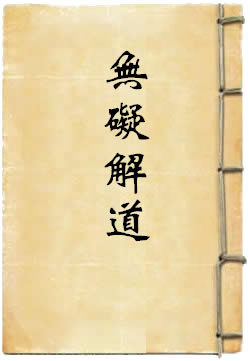 無礙解道